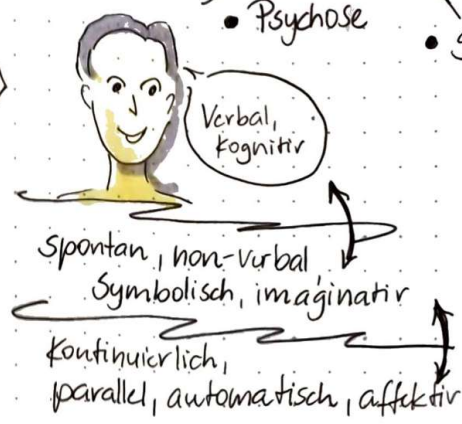 • Psychose
Verbal,
kognitiv
Spontan, non-verbal,
Symbolisch, imaginativ
Kontinuierlich,
parallel, automatisch, affektiv